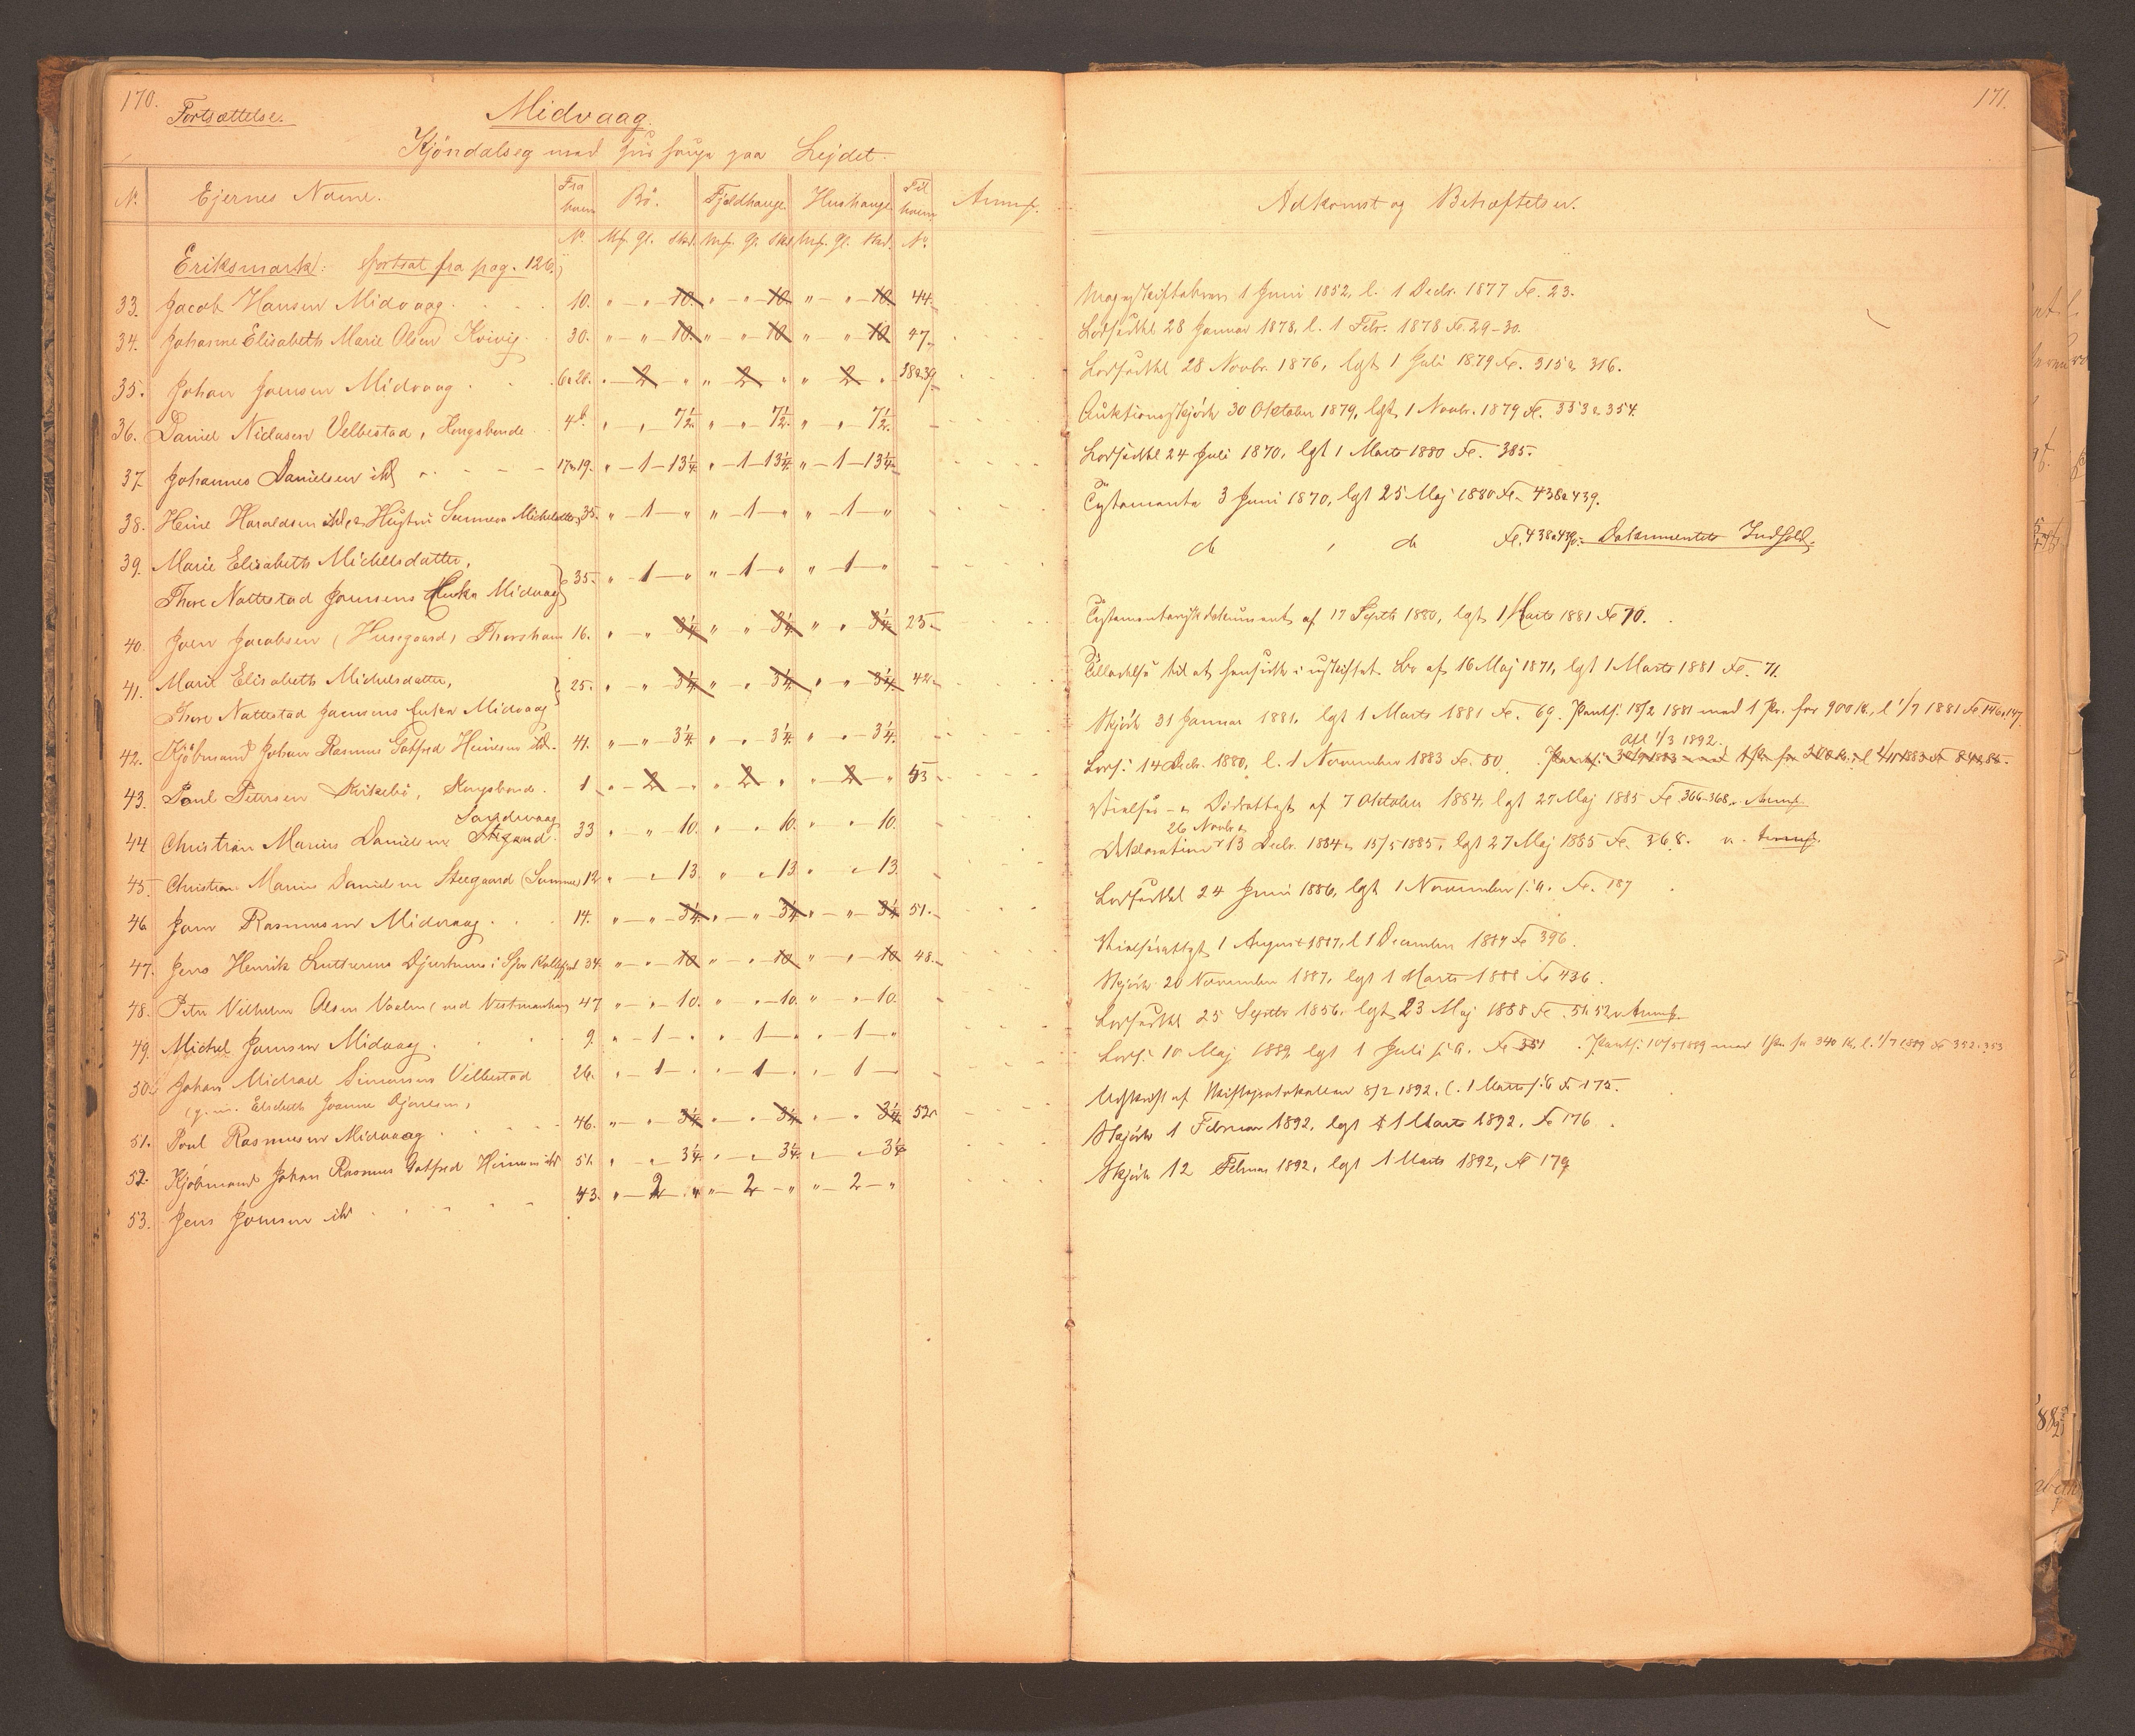 170.
Fortsættelse.
Midvaag.
Kjøndalseg med paa Lejdet.
No. Ejernes Navne. Fra havn Bö. Fjeldhauge. Hushauge. Til havn Anmk.
No. Mk. Gl. Skd. Mk. Gl. Skd. Mk. Gl. Skd. No.
Eriksmark: fortsat fra pag. 126.
33. Jacob Hansen Midvaag. 10. " " 10. " " 10 " " 10 44.
34. Johanne Elisabeth Marie Olsen Kvivig. 30. " " 10. " " 10 " " 10 47.
35. Johan Joensen Midvaag 6 & 28. " 2 " " 2 " " 2 " 38 & 39
36. Daniel Niclasen Velbestad, Kongsbonde 4 b. " " 7½ " " 7½ " " 7½
37. Johannes Danielsen ibd 17 & 19. " 1 13¼ " 1 13¼ " 1 13¼
38. Heine Haraldsen ibd, & Hustru Sunneva Michelsdatter, 35. " 1 " " 1 " " 1 "
39. Marie Elisabeth Michelsdatter,
Thore Nattestad Joensens Enke Midvaag 35. " 1 " " 1 " " 1 "
40. Joen Jacobsen (Husegaard) Thorshavn 16. " " 3¼ " " 3¼ " " 3¼ 25.
41. Marie Elisabeth Michelsdatter,
Thore Nattestad Joensens Enke Midvaag 25. " " 3¼ " " 3¼ " " 3¼ 42.
42. Kjøbmand Johan Rasmus Gotfred Heinesen ibd. 41. " " 3¼ " " 3¼ " " 3¼
43. Poul Petersen Kirkebö, Kongsbonde. 1 " 2 " " 2 " " 2 " 53
Sandevaag
44 Christian Marius Danielsen Stegaard. 33 " " 10. " " 10. " " 10.
45 Christian Marius Danielsen Steegaard (Samme) 12 " " 13 " " 13 " " 13.
46 Joen Rasmussen Midvaag 14. " " 3¼ " " 3¼ " " 3¼ 51.
47. Jens Henrik Lutherus Djurhuus i Kollefjord 34 " " 10 " " 10 " " 10 48.
48. Peter Vilhelm Olsen Vaalen (ved Vestmanhavn) 47 " " 10. " " 10. " " 10.
49. Michel Joensen Midvaag. 9. " 1 " " 1 " " 1 "
50. Johan Michael Simonsen Velbestad 26. " 1 " " 1 " " 1
(g. m. Elsebeth Joanne Djonesen,
51. Poul Rasmussen Midvaag 46. " " 3¼ " " 3¼ " " 3¼ 52
52. Kjøbmand Johan Rasmus Gotfred Heinesen ibd 51. " " 3¼ " " 3¼ " " 3¼
53. Jens Joensen ibd 43. " 2 " " 2 " " 2 "
171.
Adkomst og Behæftelser.
Mageskiftebrev 1 Juni 1852, l. 1 Decbr. 1877 Fo. 23.
Lovsedel 28 Januar 1878, l. 1 Febr. 1878 Fo. 29-30.
Lovsedel 28 Novbr. 1876, lgst 1 Juli 1879 Fo. 315 & 316.
Auktionsskjøde 30 Oktober 1879, lgst, 1 Novbr. 1879 Fo. 353 & 354.
Lovsedel 24 Juli 1870, lgst 1 Marts 1880 Fo. 385.
Testamente 3 Juni 1870, lgst 25 Maj 1880 Fo. 438 & 439.
do , do Fo. 438 & 439. Dokumentets Indhold.
Testamentarisk dokument af 17 Septb 1880, lgst 1 Marts 1881 Fo 70.
Tilladelse til at hensidde i uskiftet Bo af 16 Maj 1871, lgst 1 Marts 1881 Fo. 71.
Skjøde 31 Januar 1881, lgst 1 Marts 1881 Fo. 69. Pantf. 18/2 1881 med 1 Pr. for 900 K., l 1/7 1881 Fo 146 & 147.
Afl 1/3 1892.
Lovs: 14 Decbr. 1880, l. 1 November 1883 Fo. 80. Pantf: 30/9 1883 med 1 Pr. for 300 K. l 1/11 1883 Fo 84 & 85.
Vielses- & Dödsattest af 7 Oktober 1884, lgst 27 Maj 1885 Fo. 366-368. Anmk.
26 Novbr &
Deklaration 13 Decbr. 1884 & 15/5 1885, lgst 27 Maj 1885 Fo. 368. Anmk.
Lovsedel 24 Juni 1886, lgst 1 November s. A. Fo. 187
Vielsesattest 1 August 1887, l 1 December 1887 Fo 396.
Skjøde 20 November 1887, lgst 1 Marts 1888 Fo 436.
Lovsedel 25 Septbr 1856, lgst 23 Maj 1888 Fo. 51. 52 Anmk.
Lovs: 10 Maj 1889 lgst 1 Juli s. A. Fo 351. Pantf: 10/5 1889 med 1 Pr. for 340 K. l. 1/7 1889 Fo 352. 353
Udskrift af Skifteprotokollen 8/2 1892, l. 1 Marts s. A Fo 175.
Skjøde 1 Februar 1892, lgst 1 Marts 1892, Fo 176.
Skjøde 12 Februar 1892, lgst 1 Marts 1892, Fo 179